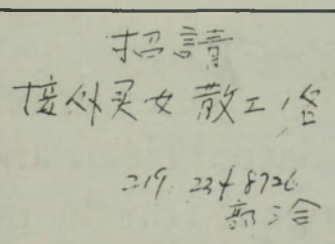 招請
接外买女散工
219 234 8726
洽